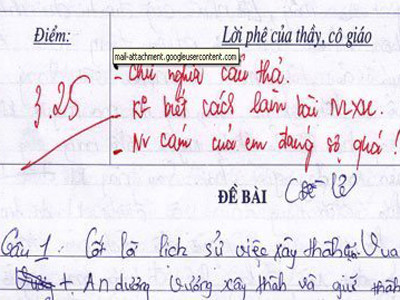 Điểm:
Lời phê của thầy, cô giáo
mail-attachment.googleusercontent.com
3.25
- Chữ nghĩa cẩu thả.
- Kg biết cách làm bài NLXH.
- cảm của em đáng sợ quá!
ĐỀ BÀI
Câu 1: Cốt lõi lịch sử việc xây thành Vua
+ An dương Vương xây thành và giữ thành